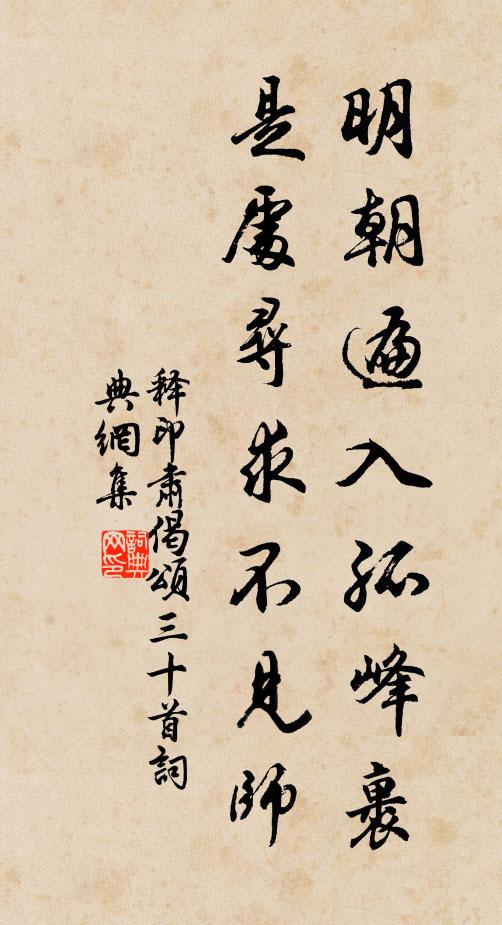 明朝遍入孤峰裏
是處尋求不見師
释印肅偈頌三十首詞
典網集
詞典
网印